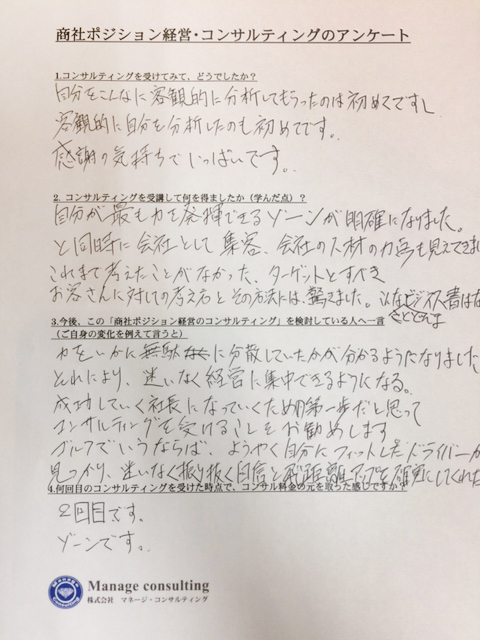 商社ポジション経営・コンサルティングのアンケート
1.コンサルティングを受けてみて、どうでしたか？
自分をこんなに客観的に分析してもらったのは初めてですし
客観的に自分を分析したのも初めてです。
感謝の気持ちでいっぱいです。
2. コンサルティングを受講して何を得ましたか（学んだ点）？
自分が最も力を発揮できるゾーンが明確になりました。
と同時に会社として集客、会社の人材の力も見えてきま
これまで考えたことがなかった、ターゲットとすべき
お客さんに対しての考え方とその方法には、驚きました。
3.今後、この「商社ポジション経営のコンサルティング」を検討している人へ一言
（ご自身の変化を例えて言うと）
力をいかに無駄に分散していたかが分かるようになりました
それにより、迷いなく経営に集中できるようになる。
成功していく社長になっていくための第一歩だと思って
コンサルティングを受けることをお勧めします
ゴルフでいうならば、ようやく自分にフィットしたドライバーが
見つかり、迷いなく振り抜く自信と飛距離アップを確実にしてくれた
4.何回目のコンサルティングを受けた時点で、コンサル料金の元を取った感じですか？
2回目です。
ゾーンです。
Manage consulting
株式会社 マネージ・コンサルティング